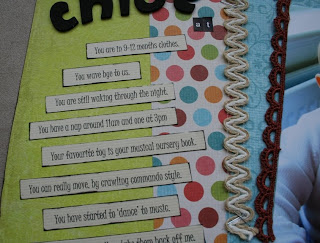 chloe
at
You are in 9-12 months clothes.
You wave bye to us.
You are still waking through the night.
You have a nap around 11am and one at 3pm
Your favourite toy is your musical nursery book.
You can really move, by crawling commando style.
You have started to 'dance' to music.
them back off me.